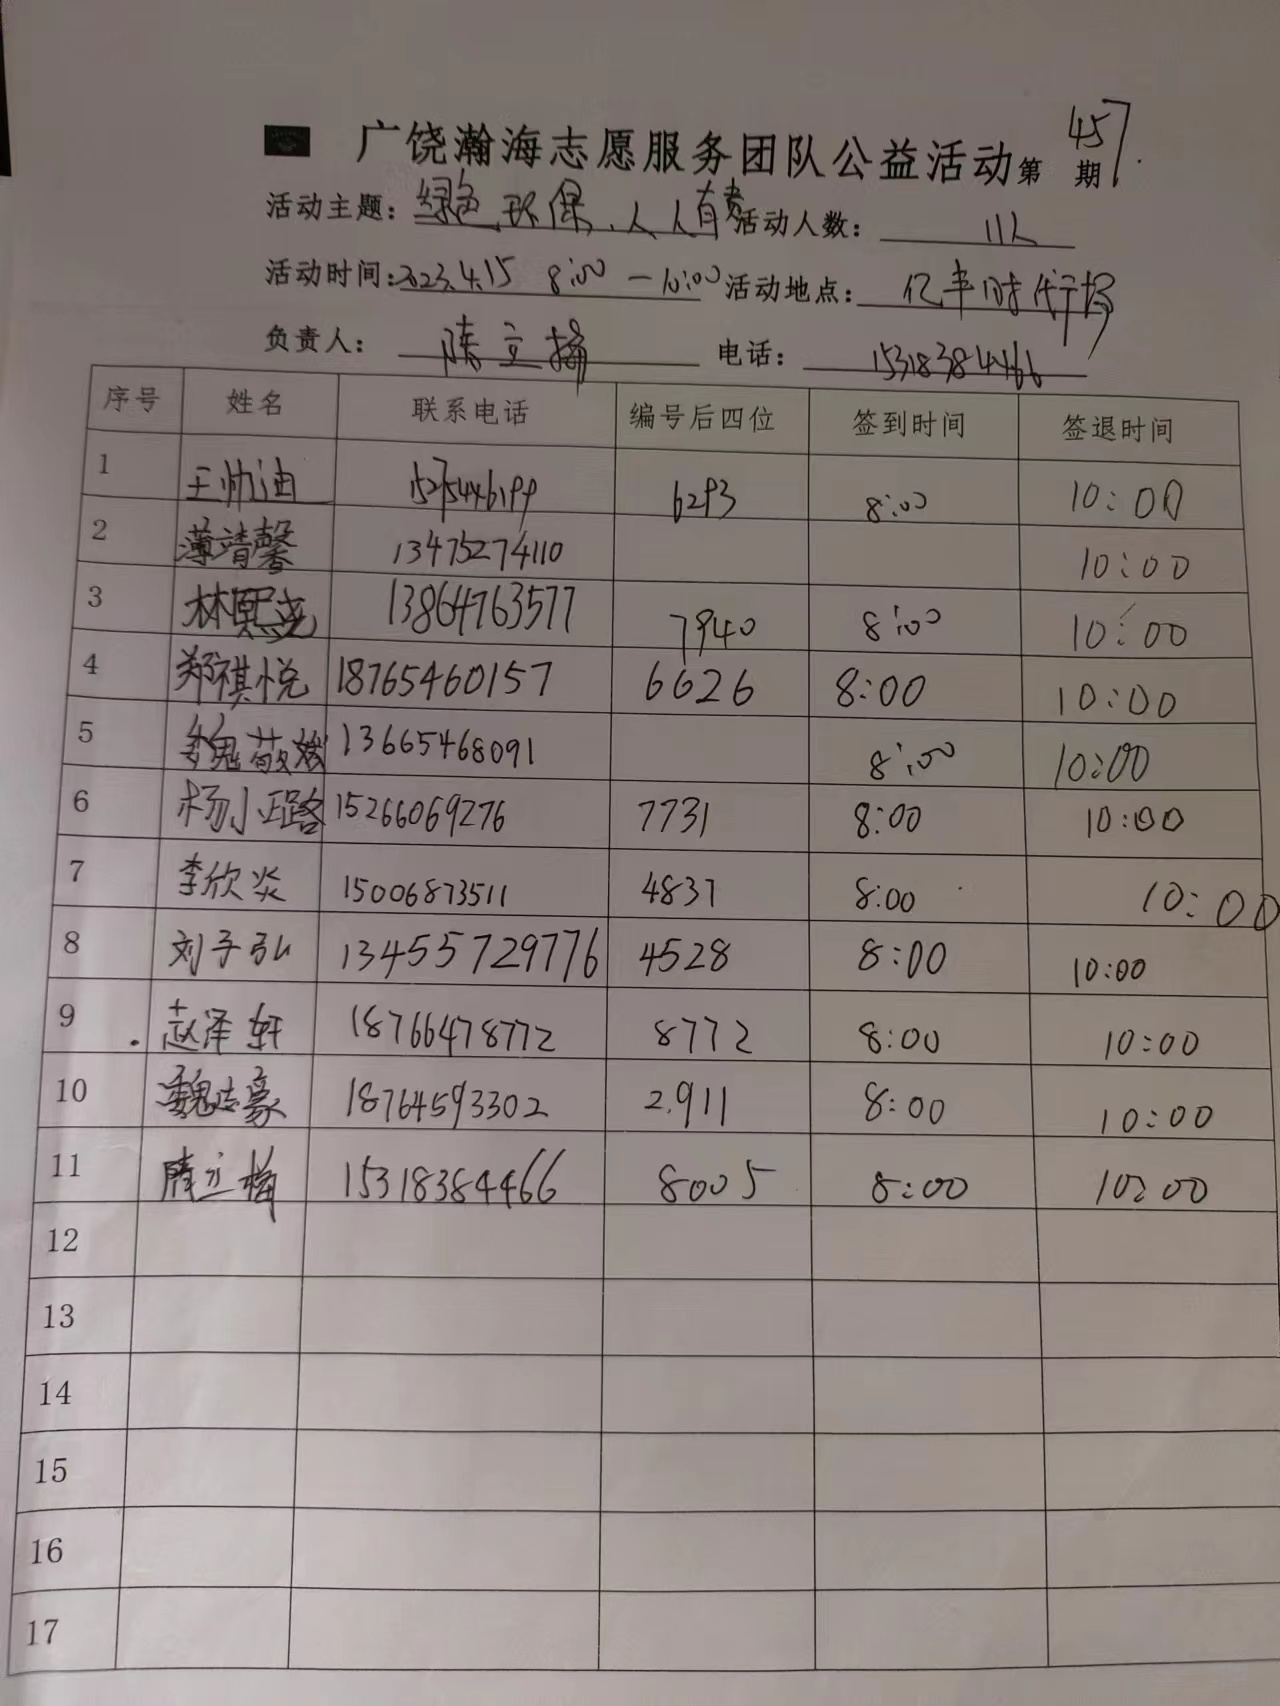 广饶瀚海志愿服务团队公益活动第457期
活动主题：绿色环保，人人有责 活动人数：11人
活动时间：2023.4.15 8:00—10:00 活动地点：亿丰时代广场
负责人： 电话：15318384466
序号 姓名 联系电话 编号后四位 签到时间 签退时间
1 王帅迪 15275446199 6293 8:00 10:00
2 薄靖馨 13475274110 10:00
3 林熙尧 13864763577 7940 8:00 10:00
4 郑祺悦 18765460157 6626 8:00 10:00
5 13665468091 8:00 10:00
6 15266069276 7731 8:00 10:00
7 李欣炎 15006873511 4837 8:00 10:00
8 刘子弘 134555729776 4528 8:00 10:00
9 赵泽轩 18766478772 8772 8:00 10:00
10 魏志豪 18764593302 2911 8:00 10:00
11 15318384466 8005 8:00 10:00
12
13
14
15
16
17